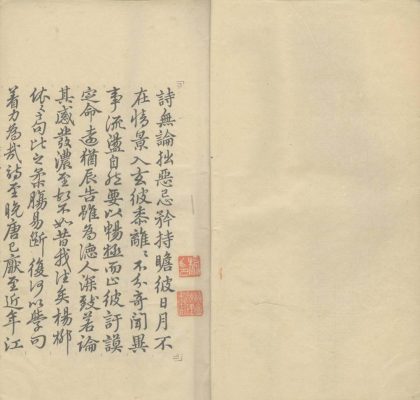 詩無論拙惡忌矜持瞻彼日月不
在情景入玄彼黍離〻不分奇聞異
事流盪自然要以暢極而止彼訏謨
定命遠猶辰告雖為德人深致若論
其感發濃至故不如昔我往矣楊柳
依〻句此之柔腸易斷復何以學句
着力為哉詩至晚唐已厭至近年江